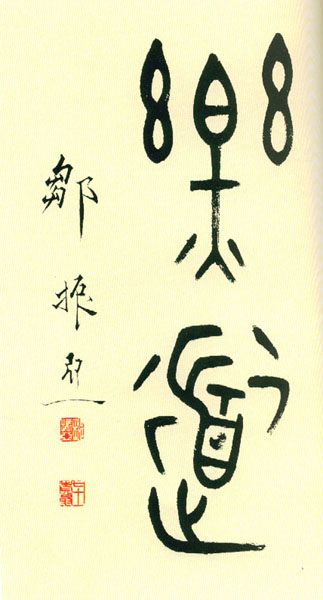 樂道
鄒振亞